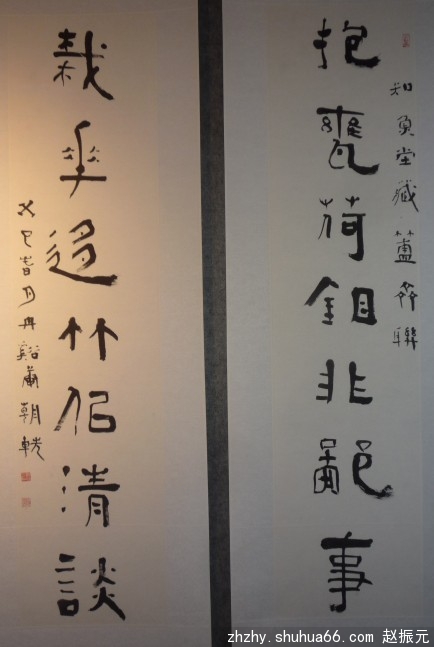 抱甕荷鉏非鄙事
知魚堂藏簠齋聯
栽華迻竹佀清談
巳旾月冉谿朝
zhzhy.shuhua66.com 赵振元